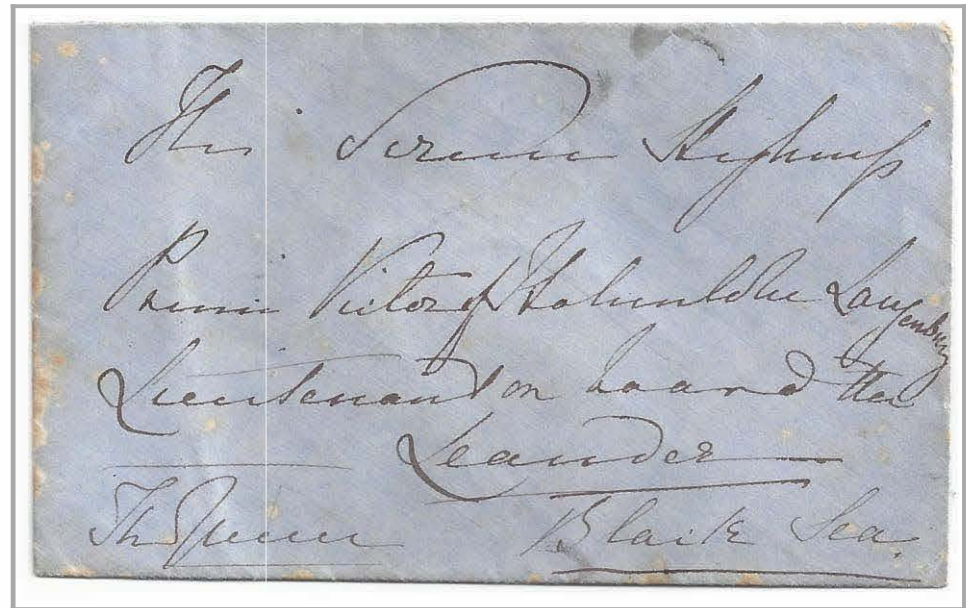 His Serene Highness
Prince Victor of Hohenlohe Langenburg
Lieutenant on board the
Leander
The Queen Black Sea.